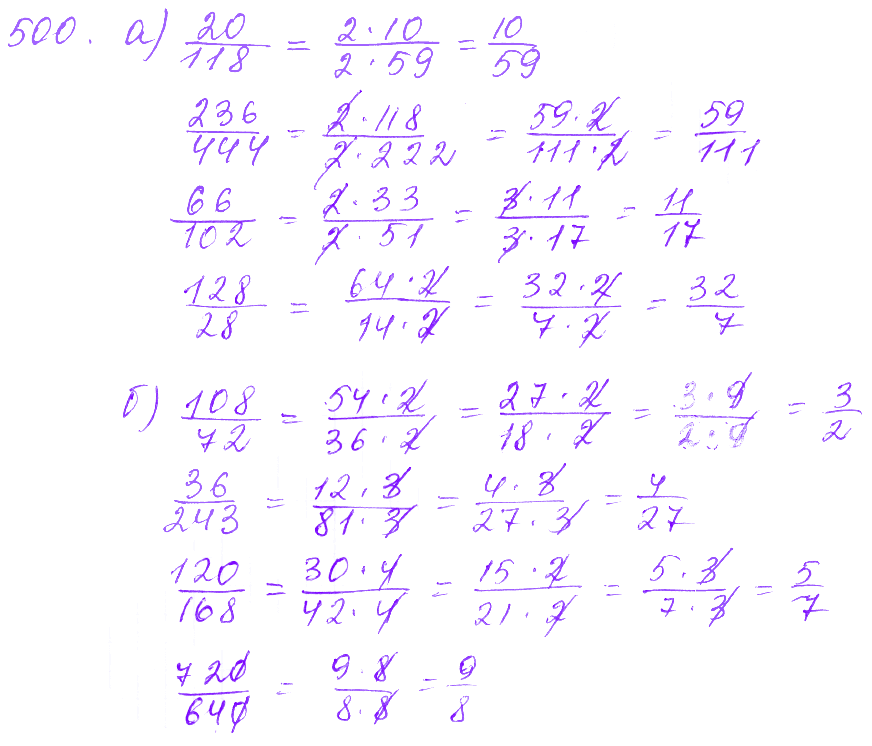 500. а) 20/118 = 2·10/2·59 = 10/59
236/444 = 2·118/2·222 = 59·2/111·2 = 59/111
66/102 = 2·33/2·51 = 3·11/3·17 = 11/17
128/28 = 64·2/14·2 = 32·2/7·2 = 32/7
б) 108/72 = 54·2/36·2 = 27·2/18·2 = 3·9/2·9 = 3/2
36/243 = 12·3/81·3 = 4·3/27·3 = 4/27
120/168 = 30·4/42·4 = 15·2/21·2 = 5·3/7·3 = 5/7
720/640 = 9·8/8·8 = 9/8